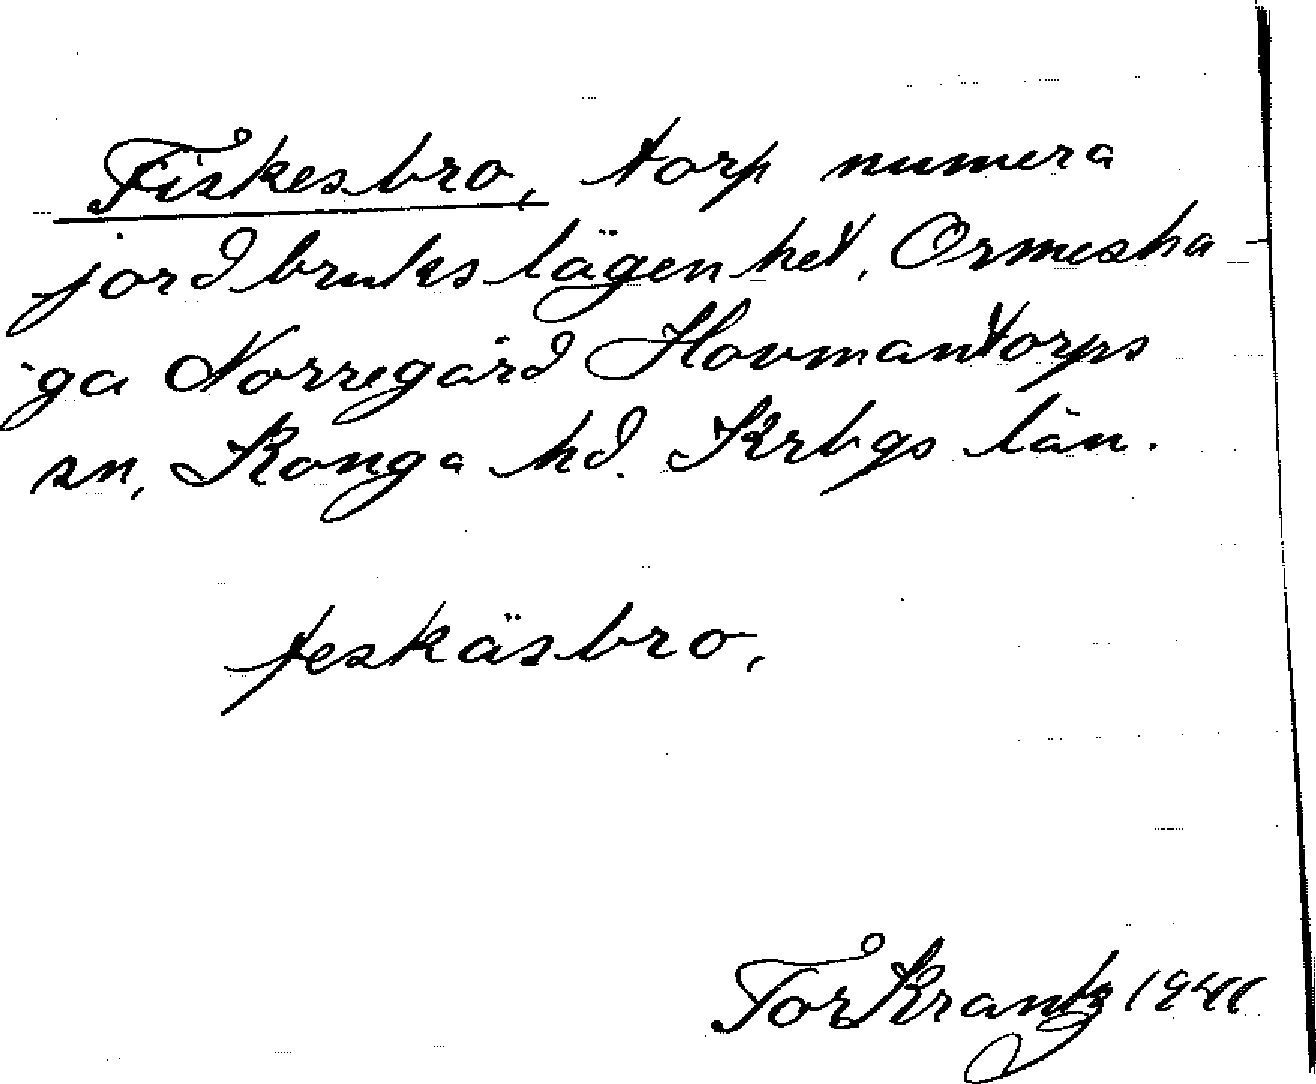 Fiskesbro, torp numera
jordbrukslägenhet, Ormesha
ga Norregård Hovmantorps
sn, Konga hd. Krbgs län.
feskäsbro,
Tor Krantz 1941